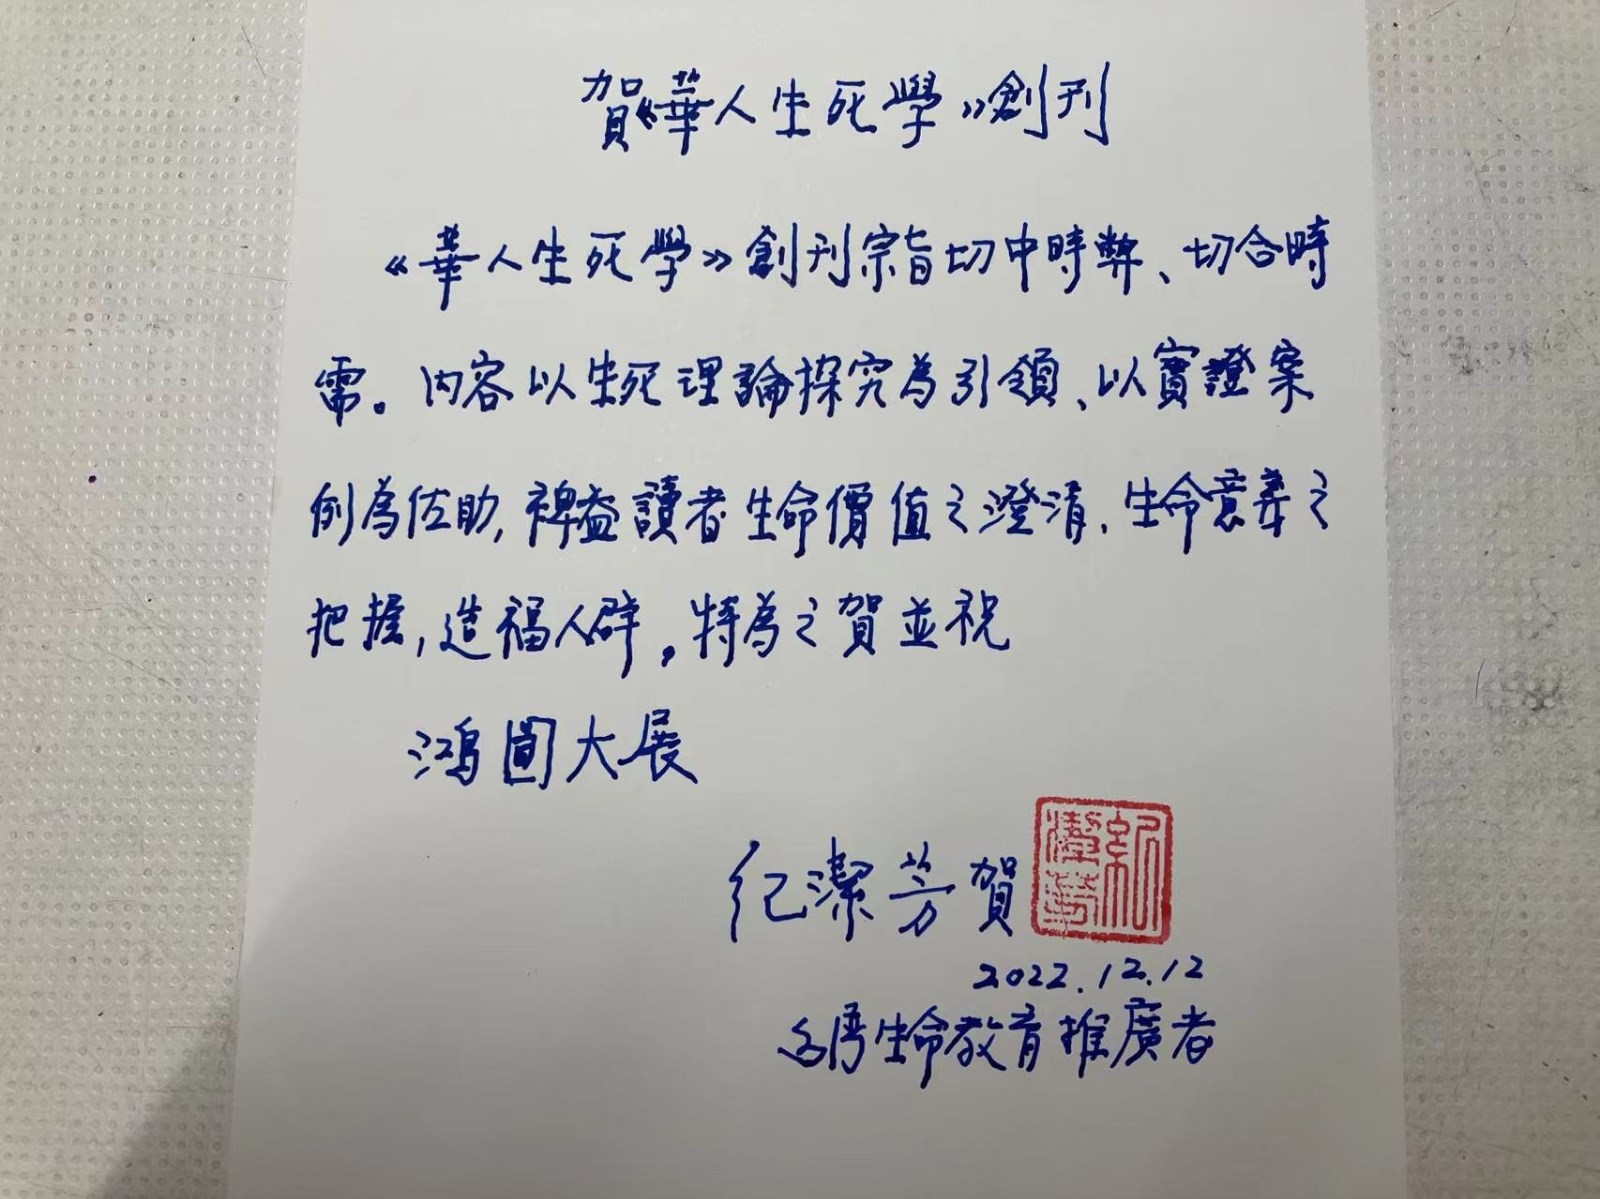 賀《華人生死學》創刊
《華人生死學》創刊宗旨切中時弊、切合時
需。內容以生死理論探究為引領、以實證案
例為佐助,裨益讀者生命價值之澄清、生命意義之
把握,造福人群。特為之賀並祝
鴻圖大展
紀潔芳賀
紀潔芳
2022.12.12
台灣生命教育推廣者